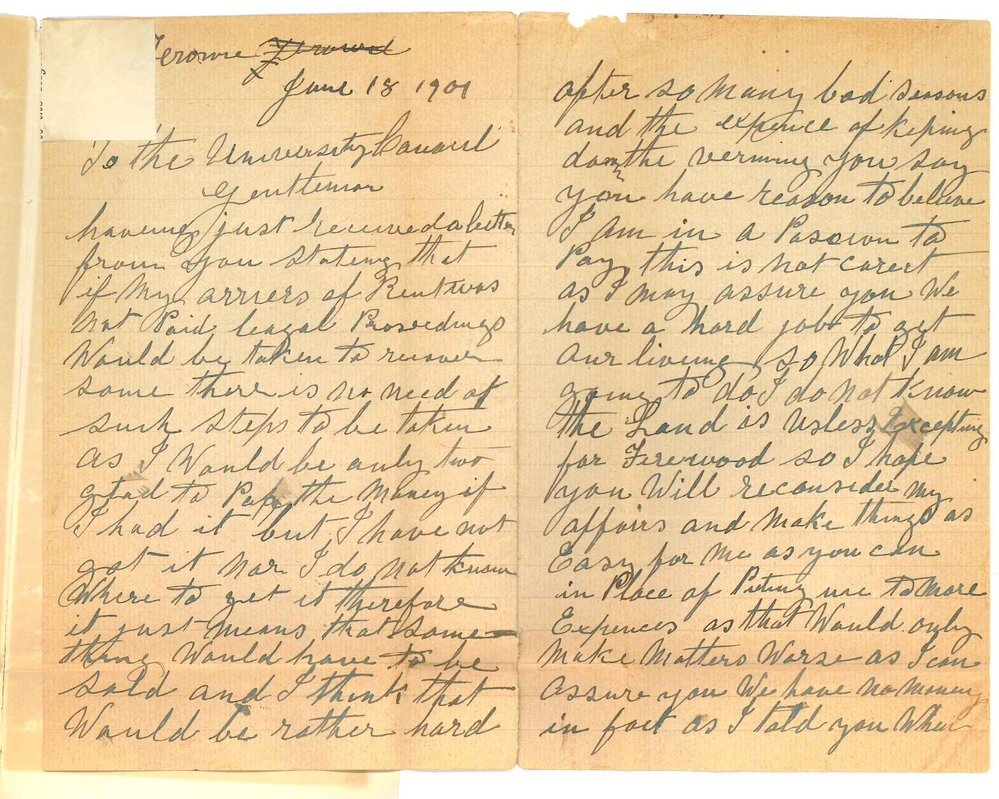 Terowie
June 18 1901
To the University Council
Gentlemen
haveing just received a letter
from you stateing that
if my arriers of Rent was
not Paid leagal Proseedings
Would be taken to recover
same there is no need of
such steps to be taken
as I Would be only two
glad to Pay the Money if
I had it but I have not
got it nor I do not know
Where to get it therefore
it just means that some-
thing Would have to be
sold and I think that
Would be rather hard
after so many bad seasons
and the expence of keping
down the verming you say
you have reason to believe
I am in a Posision to
Pay this is not carect
as I may assure you We
have a hard job to get
our liveing so What I am
going to do I do not know
the Land is usless Excepting
for Firewood so I hope
you Will reconsider my
affairs and make things as
Easy for me as you can
in Place of Puting me to more
Expences as that Would only
Make Matters Worse as I can
assure you We have no money
in fact as I told you When